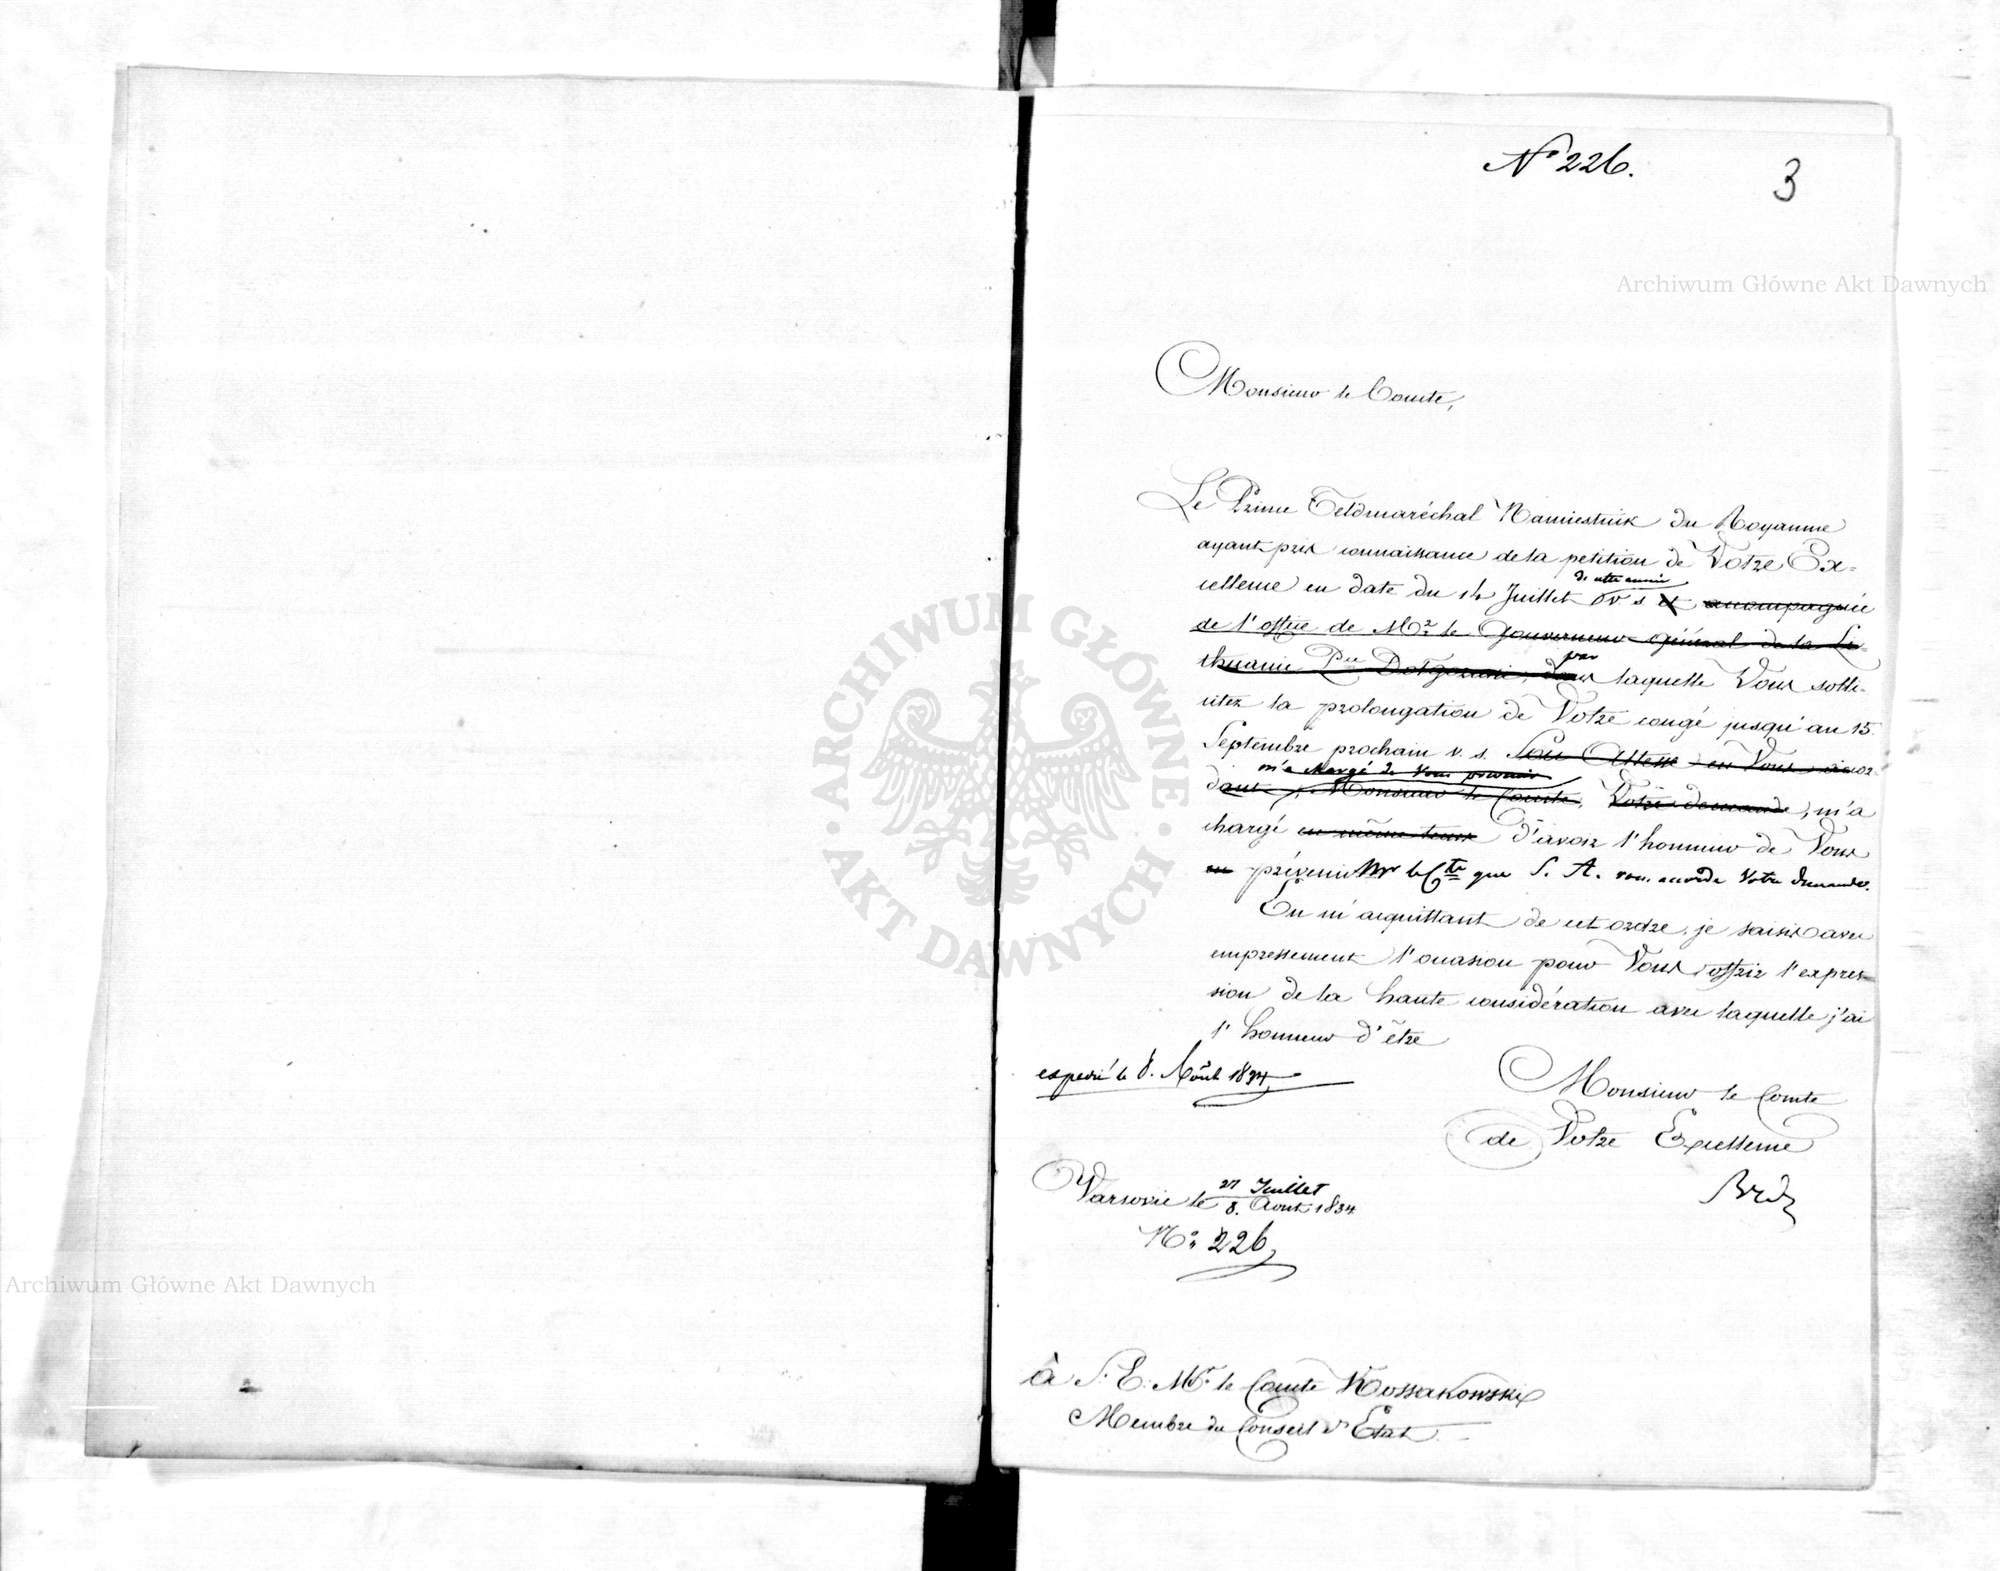 N° 226.
3
Archiwum Główne Akt Dawnych
Monsieur le Comte,
Le Prince Feldmaréchal Namiestnik du Royaume
ayant pris connaissance de la petition de Votre Ex=
cellence en date du 14 Juillet v. s. de cette année et accompagnée
de l'office de Mr le Gouverneur Général de la Li=
thuanie Pce Dolgorouki, dans par laquelle Vous solli-
citez la prolongation de Votre congé jusqu'au 15.
Septembre prochain v. s. Son Altesse en Vous accor-
m'a chargé de Vous prevenir
dant, Monsieur le Comte, Votre demande, m'a
chargé en même tems d'avoir l'honneur de Vous
en prévenir Mr le Cte que S. A. vous accorde Votre demande.
En m'acquittant de cet ordre, je saisis avec
empressement l'occasion pour Vous offrir l'expres-
sion de la haute considération avec laquelle j'ai
l'honneur d'être
expedié le 8. Août 1834
Monsieur le Comte
de Votre Excellence
Varsovie le 27 Juillet / 8. Aout 1834
N° 226
à S. E. Mr. le Comte Kossakowski
Membre du Conseil d'Etat.
Archiwum Główne Akt Dawnych
ARCHIWUM GŁÓWNE
AKT DAWNYCH